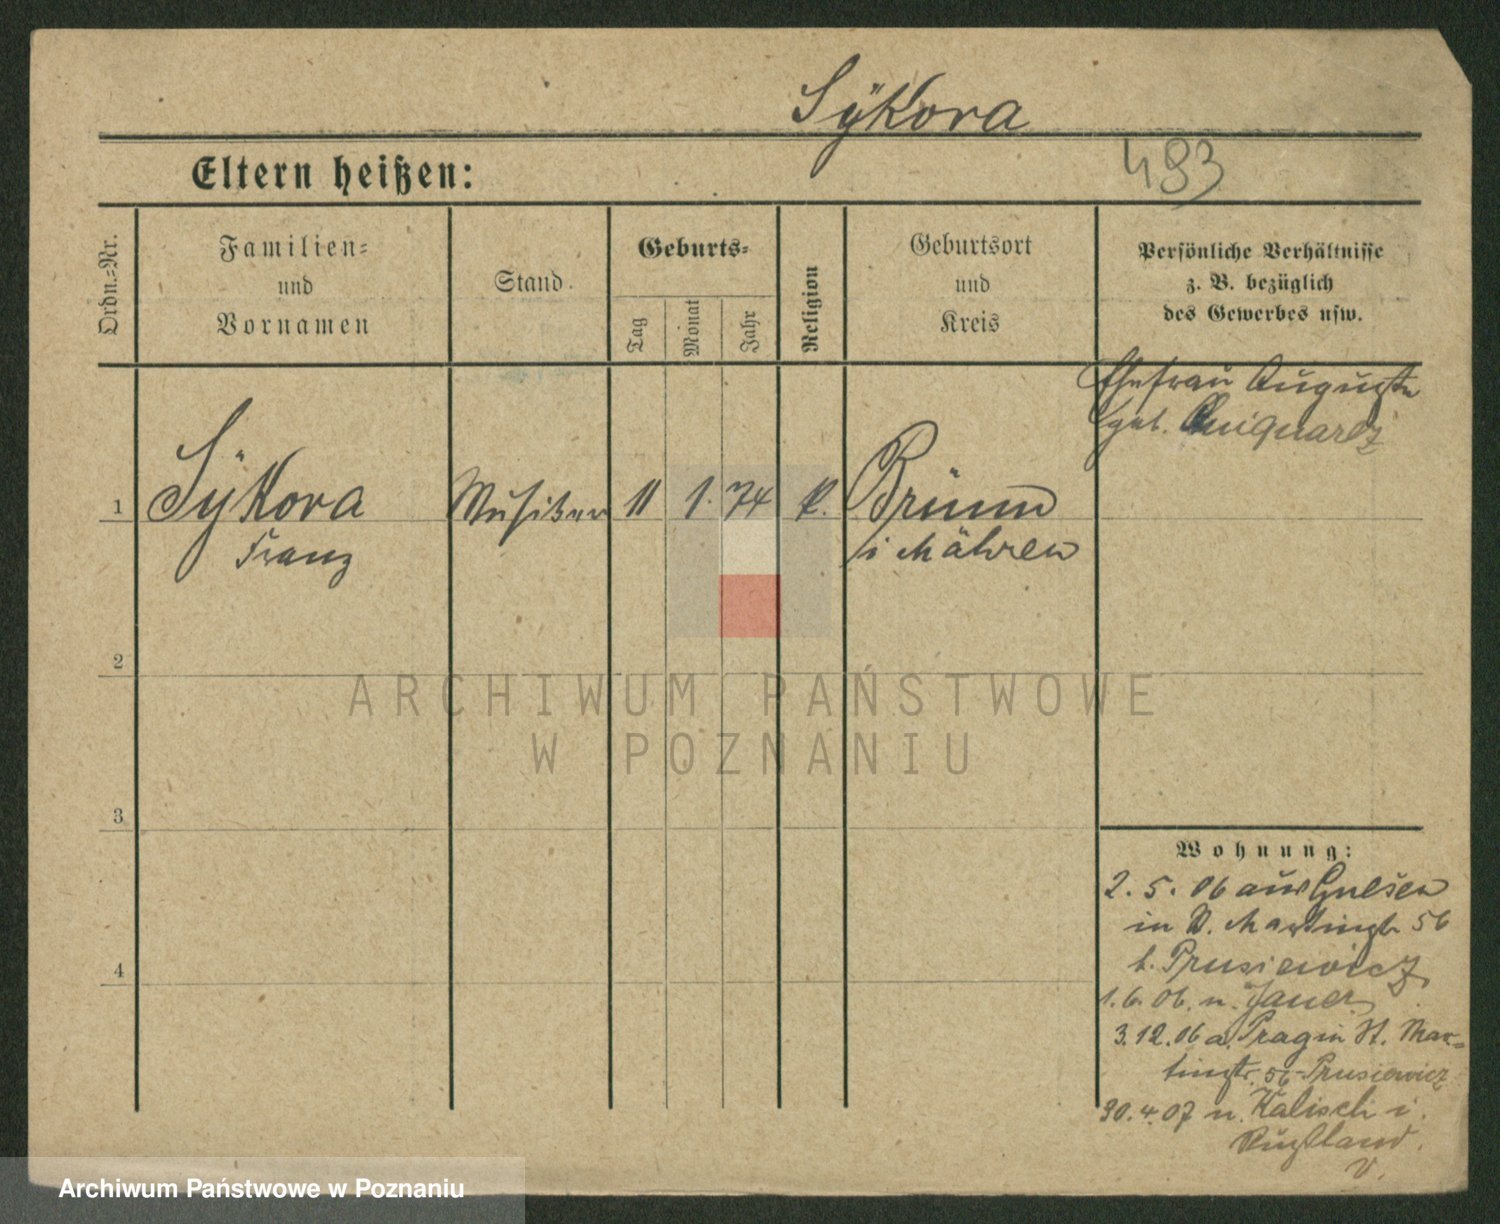 Sÿkora
493
Eltern heißen:
Ordn.=Nr.
Familien=
und
Vornamen
Stand.
Geburts=
Tag
Monat
Jahr
Religion
Geburtsort
und
Kreis
Persönliche Verhältnisse
z. B. bezüglich
des Gewerbes usw.
Ehefrau Auguste
geb.
1
Sÿkora
Franz
Musiker
11
1.
74
k.
Brünn
i Mähren
2
3
4
Wohnung:
2. 5. 06 aus Gnesen
in St. Martinstr 56
b. Prusiewicz
1. 6. 06. n. Jauer
3. 12. 06 a. Prag in St. Mar-
tinstr. 56 Prusiewicz
30. 4. 07 n. Kalisch i.
Rußland.
V.
ARCHIWUM PAŃSTWOWE
W POZNANIU
Archiwum Państwowe w Poznaniu